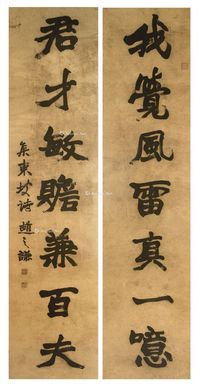 我覺風雷真一噫
君才敏贍兼百夫
集東坡詩 趙之謙